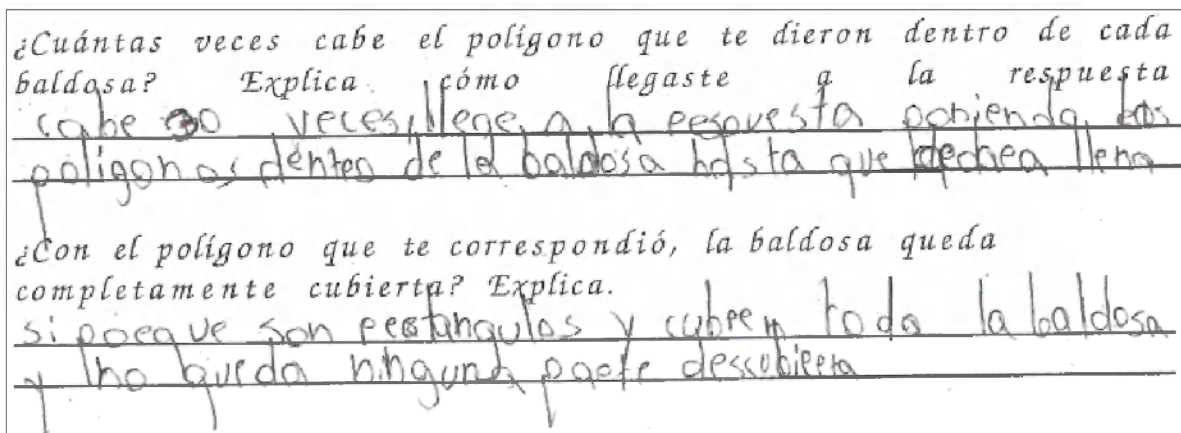 ¿Cuántas veces cabe el polígono que te dieron dentro de cada
baldosa? Explica cómo llegaste a la respuesta
cabe 30 veces, llege a la respuesta poniendo los
poligonos dentro de la baldosa hasta que llena
¿Con el polígono que te correspondió, la baldosa queda
completamente cubierta? Explica.
si porque son rectangulos y cubren toda la baldosa
y no queda ninguna parte descubierta